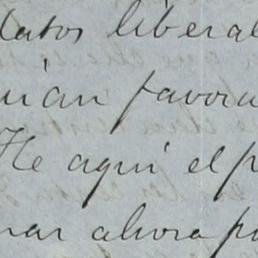 datos liberal
uian favora
He aqui el p
nar ahora po